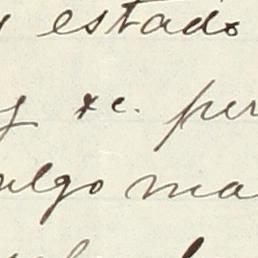 y estado
y &c. per
algo ma